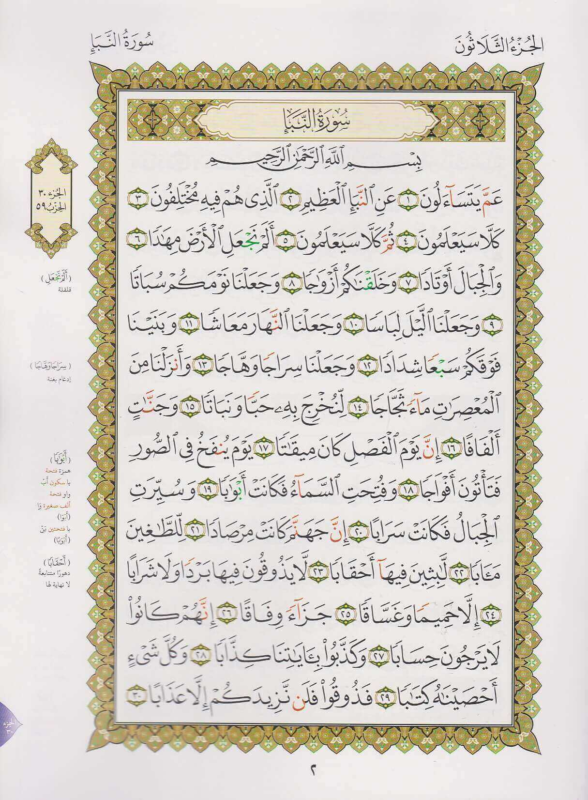 الجزء الثلاثون
سورة النبإ
سورة النبإ
بسم الله الرحمن الرحيم
عَمَّ يَتَسَآءَلُونَ ١ عَنِ ٱلنَّبَإِ ٱلۡعَظِيمِ ٢ ٱلَّذِي هُمۡ فِيهِ مُخۡتَلِفُونَ ٣
كَلَّا سَيَعۡلَمُونَ ٤ ثُمَّ كَلَّا سَيَعۡلَمُونَ ٥ أَلَمۡ نَجۡعَلِ ٱلۡأَرۡضَ مِهَٰدٗا ٦
وَٱلۡجِبَالَ أَوۡتَادٗا ٧ وَخَلَقۡنَٰكُمۡ أَزۡوَٰجٗا ٨ وَجَعَلۡنَا نَوۡمَكُمۡ سُبَاتٗا
٩ وَجَعَلۡنَا ٱلَّيۡلَ لِبَاسٗا ١٠ وَجَعَلۡنَا ٱلنَّهَارَ مَعَاشٗا ١١ وَبَنَيۡنَا
فَوۡقَكُمۡ سَبۡعٗا شِدَادٗا ١٢ وَجَعَلۡنَا سِرَاجٗا وَهَّاجٗا ١٣ وَأَنزَلۡنَا مِنَ
ٱلۡمُعۡصِرَٰتِ مَآءٗ ثَجَّاجٗا ١٤ لِّنُخۡرِجَ بِهِۦ حَبّٗا وَنَبَاتٗا ١٥ وَجَنَّٰتٍ
أَلۡفَافًا ١٦ إِنَّ يَوۡمَ ٱلۡفَصۡلِ كَانَ مِيقَٰتٗا ١٧ يَوۡمَ يُنفَخُ فِي ٱلصُّورِ
فَتَأۡتُونَ أَفۡوَاجٗا ١٨ وَفُتِحَتِ ٱلسَّمَآءُ فَكَانَتۡ أَبۡوَٰبٗا ١٩ وَسُيِّرَتِ
ٱلۡجِبَالُ فَكَانَتۡ سَرَابًا ٢٠ إِنَّ جَهَنَّمَ كَانَتۡ مِرۡصَادٗا ٢١ لِّلطَّٰغِينَ
مَـَٔابٗا ٢٢ لَّٰبِثِينَ فِيهَآ أَحۡقَابٗا ٢٣ لَّا يَذُوقُونَ فِيهَا بَرۡدٗا وَلَا شَرَابًا
٢٤ إِلَّا حَمِيمٗا وَغَسَّاقٗا ٢٥ جَزَآءٗ وِفَاقًا ٢٦ إِنَّهُمۡ كَانُواْ
لَا يَرۡجُونَ حِسَابٗا ٢٧ وَكَذَّبُواْ بِـَٔايَٰتِنَا كِذَّابٗا ٢٨ وَكُلَّ شَيۡءٍ
أَحۡصَيۡنَٰهُ كِتَٰبٗا ٢٩ فَذُوقُواْ فَلَن نَّزِيدَكُمۡ إِلَّا عَذَابًا ٣٠
الجزء ٣٠
الحزب ٥٩
(أَلَمْ نَجْعَلِ)
قلقلة
(سِرَاجًا وَهَّاجًا)
إدغام بغنة
(أَبْوَٰبًا)
همزة فتحة
با سكون أب
واو فتحة
ألف صغيرة وا
(أبوا)
با فتحتين بن
(أَبْوَٰبًا)
(أَحْقَابًا)
دهورا متتابعة
لا نهاية لها
جزء
٣٠
٢